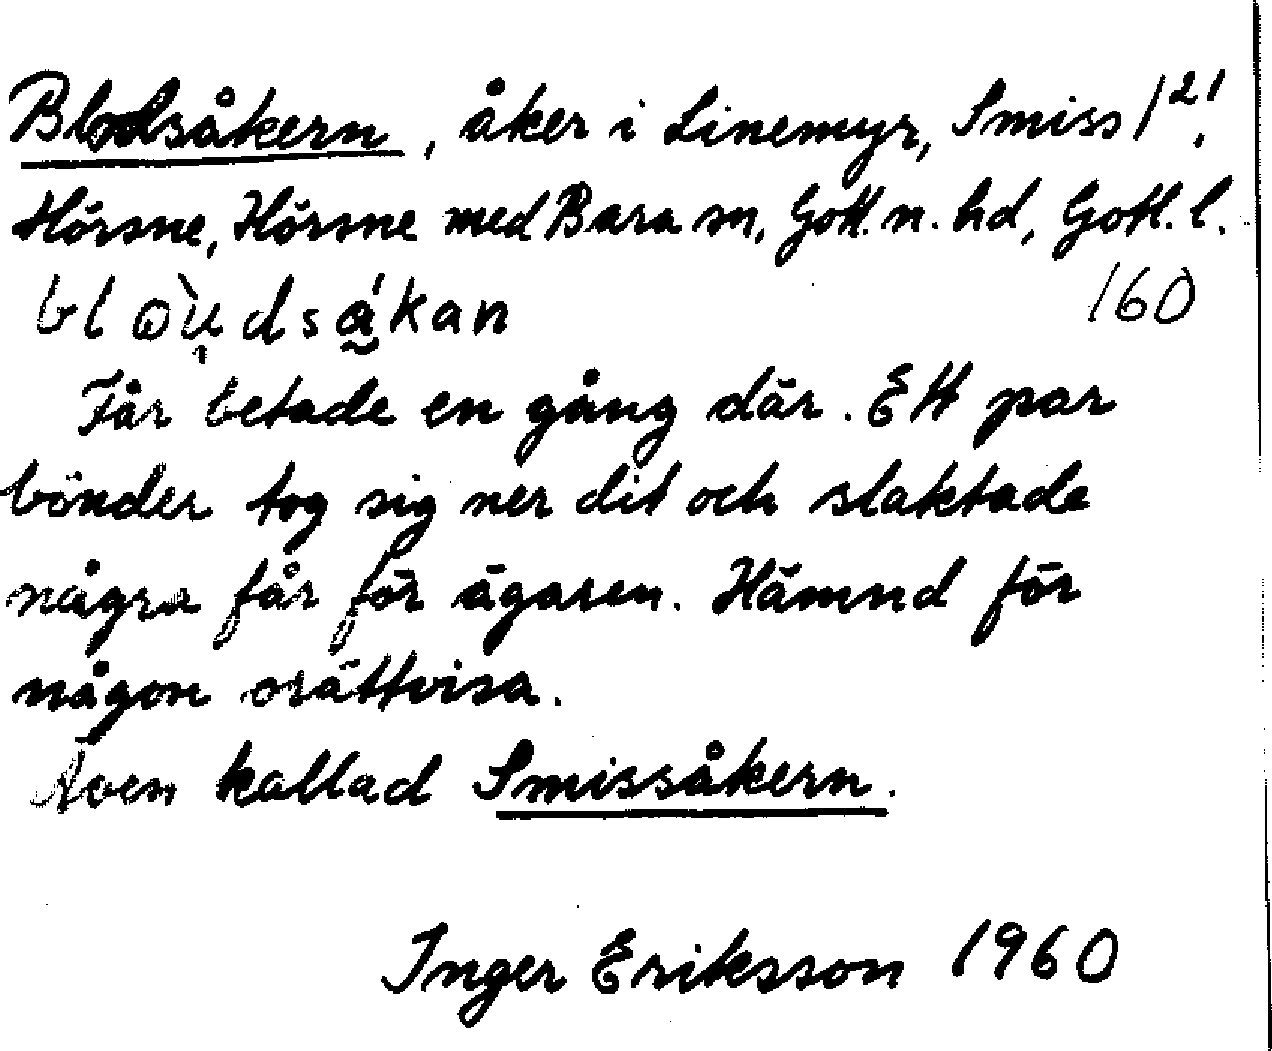 Blodsåkern, åker i Linemyr, Smiss 1²¹,
Hörsne, Hörsne med Bara sn, Gotl. n. hd, Gotl. l.
blɷ̀u̯dsá̰kan 160
Får betade en gång där. Ett par
bönder tog sig ner dit och slaktade
några får för ägaren. Hämnd för
någon orättvisa.
Även kallad Smissåkern.
Inger Eriksson 1960